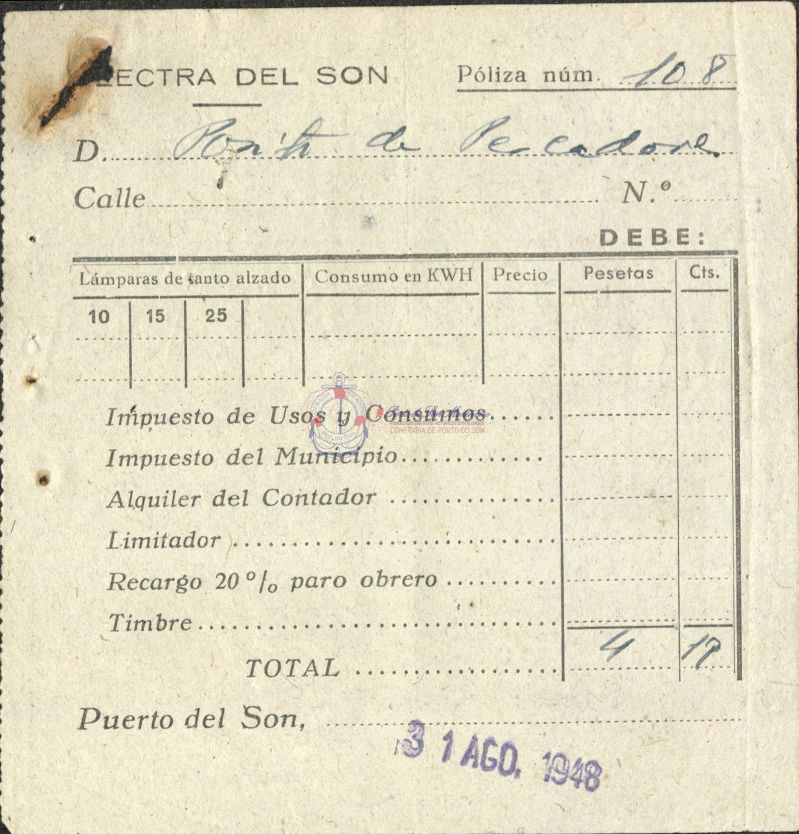 ELECTRA DEL SON
Póliza núm. 108
D. Posito de Pescadores
Calle N.º
DEBE:
Lámparas de tanto alzado Consumo en KWH Precio Pesetas Cts.
10 15 25
Impuesto de Usos y Consumos
COFRARÍA DE PORTO DO SON
Impuesto del Municipio
Alquiler del Contador
Limitador
Recargo 20 % paro obrero
Timbre
TOTAL 4 17
Puerto del Son,
31 AGO. 1948